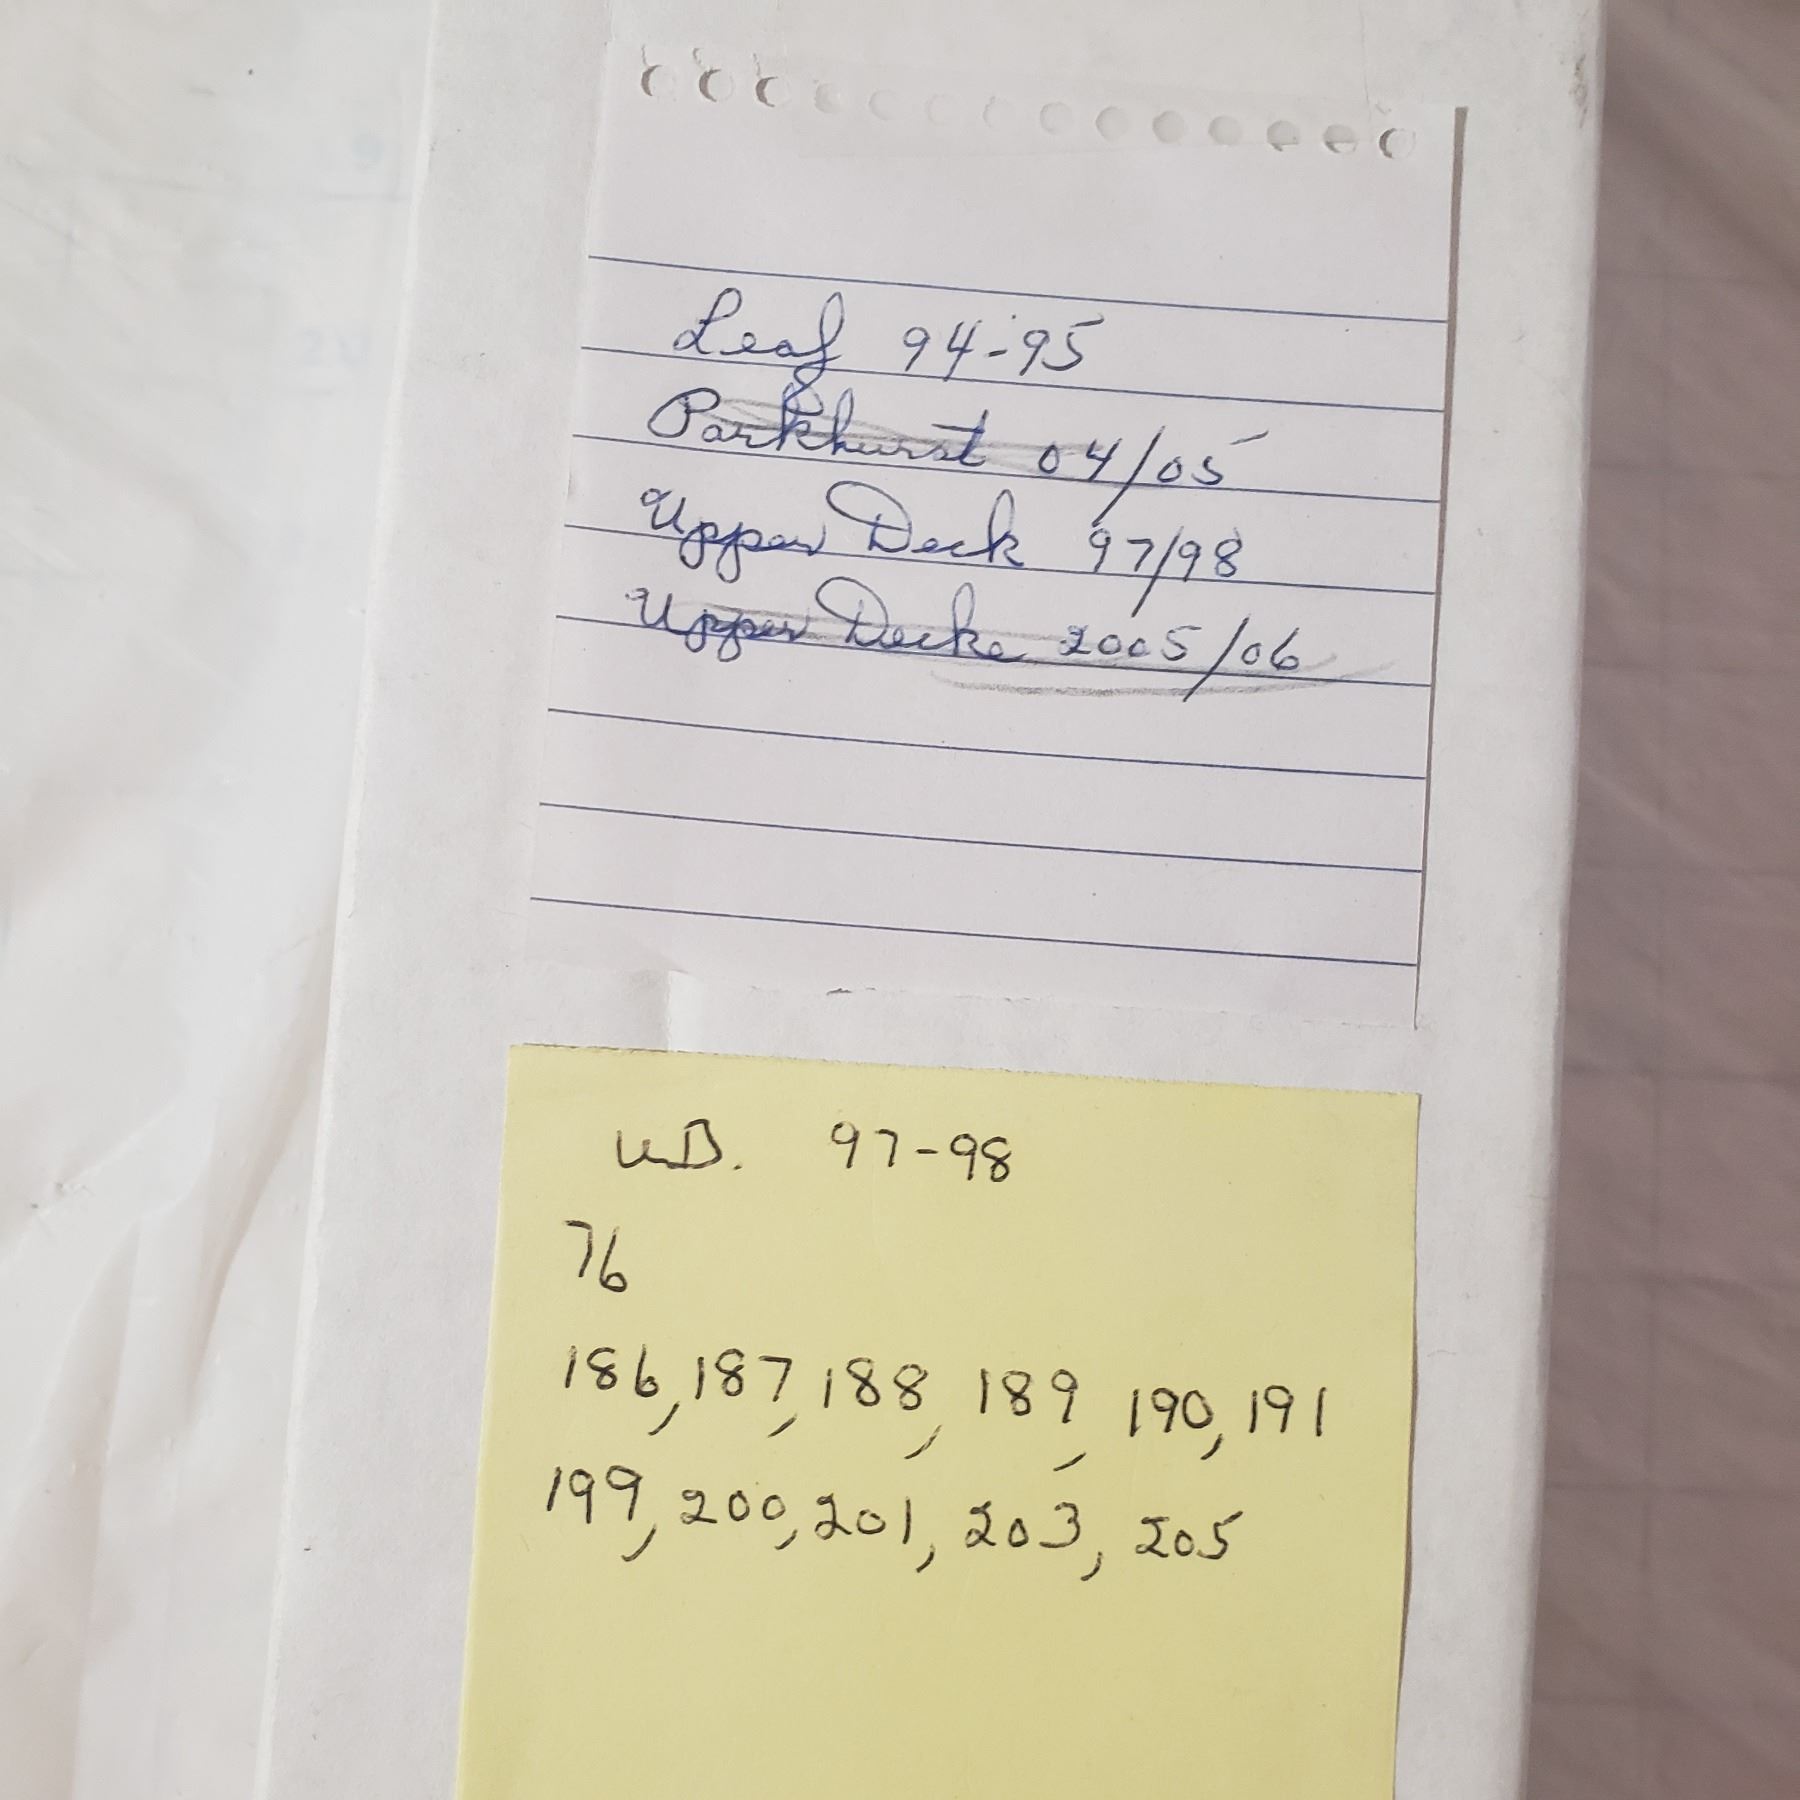 Leaf 94-95
Parkhurst 04/05
Upper Deck 97/98
Upper Decke 2005/06
U.D. 97-98
76
186, 187, 188, 189, 190, 191
199, 200, 201, 203, 205